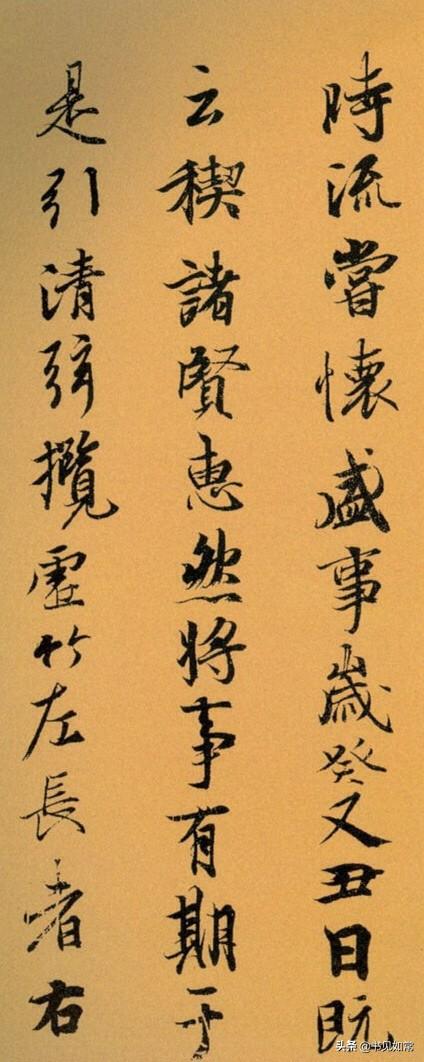 時流嘗懷盛事歲癸又丑日既
云稧諸賢惠然將事有期于
是引清弦攬虛竹左長右
头条 @书见如常